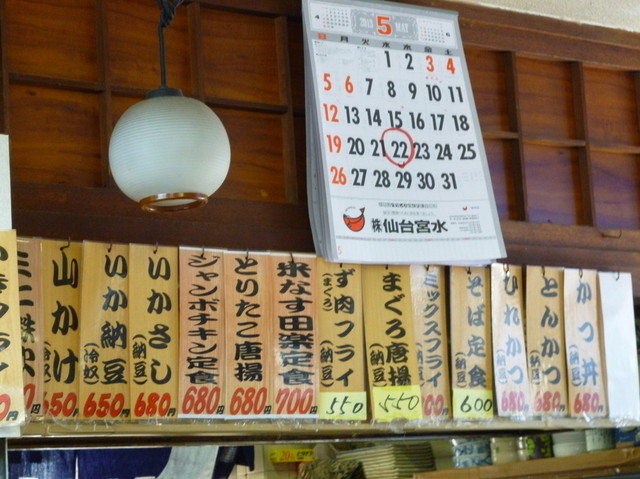 4
2013 5 MAY
日 月 火 水 木 金 土
1 2 3 4
5 6 7 8 9 10 11
12 13 14 15 16 17 18
19 20 21 22 23 24 25
26 27 28 29 30 31
株 仙台宮水
山かけ
650円
いか納豆
(冷奴)
650円
いかさし
(納豆)
680円
ジャンボチキン定食
680円
とりたこ唐揚
680円
米なす田楽定食
700円
ず肉フライ
(まぐろ)
550
まぐろ唐揚
(納豆)
550
ミックスフライ
(納豆)
00円
そば定食
(納豆)
600
ひれかつ
(納豆)
680円
とんかつ
(納豆)
680円
かつ丼
(納豆)
680円